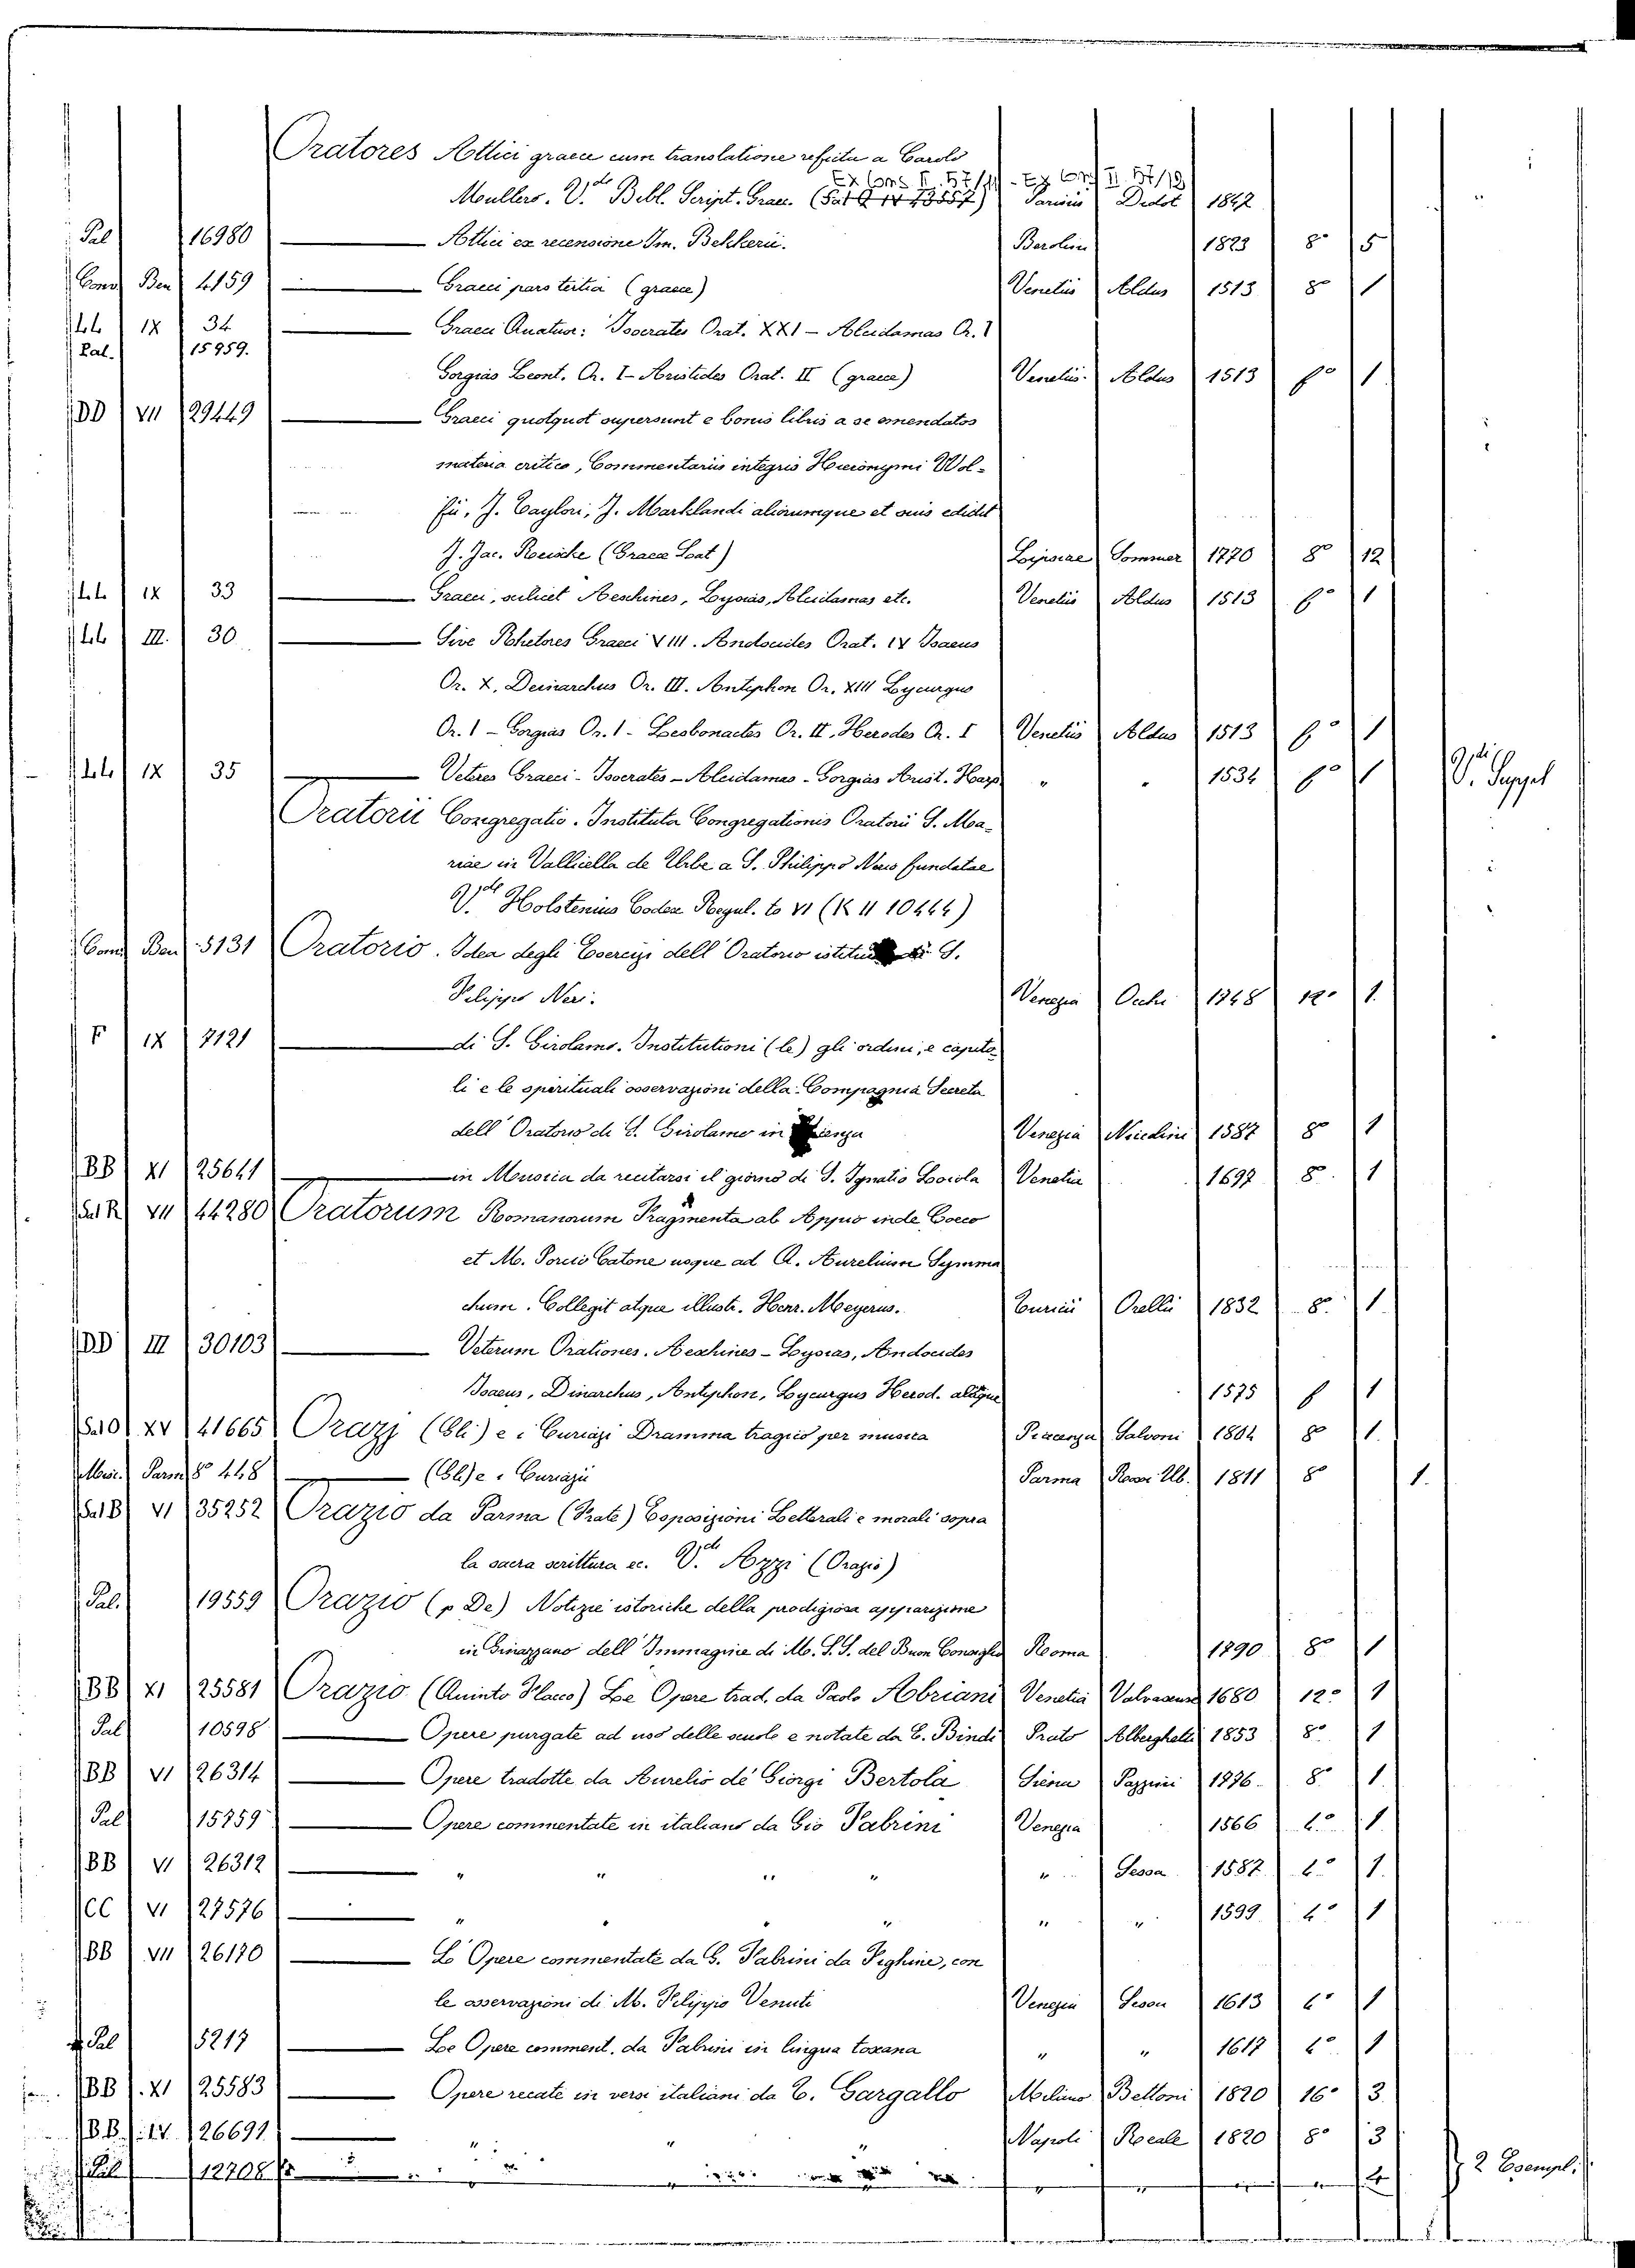 Oratores Attici graece cum translatione refecta a Carolo
Ex Cons II. 57/11 - Ex Cons II. 57/12
Mullero. V.de Bibl. Script. Graec. Parisiis Didot 1847
Pal 16980 — Attici ex recensione Im. Bekkerii. Berolini 1823 8° 5
Conv Ben 4159 — Graeci pars tertia (graece) Venetiis Aldus 1513 8° 1
IX 34 — Graeci Quatuor: Isocrates Orat. XXI - Alcidamas Or. 1
Pal. 15959.
Gorgias Leont. Or. I - Aristides Orat. II (graece) Venetiis. Aldus 1513 f° 1
DD VII 29449 — Graeci quotquot supersunt e bonis libris a se emendatos
materia critica, Commentariis integris Hieronymi Wol-
fii, J. Taylori, J. Marklandi aliorumque et suis edidit
J. Jac. Reiske (Graece Lat) Lipsiae Sommer 1770 8° 12
IX 33 — Graeci, scilicet Aeschines, Lysias, Alcidamas etc. Venetiis Aldus 1513 f° 1
III. 30 — Sive Rhetores Graeci VIII. Andocides Orat. IV Isaeus
Or. X, Deinarchus Or. III. Antiphon Or. XIII Lycurgus
Or. 1 - Gorgias Or. 1 - Lesbonactes Or. II, Herodes Or. I Venetiis Aldus 1513 f° 1
IX 35 — Veteres Graeci - Isocrates - Alcidamas - Gorgias Arist. Harp " " 1534 f° 1
Oratorii Congregatio. Instituta Congregationis Oratorii S. Ma-
riae in Vallicella de Urbe a S. Philippo Nerio fundatae
V.de Holstenius Codex Regul. to VI (K II 10444)
Conv Ben 5131 Oratorio. Idea degli Esercizj dell' Oratorio S.
Filippo Neri. Venezia Occhi 1748 12° 1.
F IX 7121 — di S. Girolamo. Institutioni (le) gli ordini, e capito-
li e le spirituali osservazioni della Compagnia Secreta
dell' Oratorio di S. Girolamo in Venezia 1587 8° 1
BB XI 25641 — in Musica da recitarsi il giorno di S. Ignatio Loiola Venetia 1697 8°. 1
Sal R VII 44280 Oratorum Romanorum Fragmenta ab Appio inde Coeco
et M. Porcio Catone usque ad Q. Aurelium Symma
chum. Collegit atque illustr. Henr. Meyerus. Turici Orelli 1832 8°. 1
DD III 30103 — Veterum Orationes. Aeschines - Lysias, Andocides
Isaeus, Dinarchus, Antiphon, Lycurgus Herod. aliique 1575 f 1
Sal O XV 41665 Orazj (Gli) e i Curiazi Dramma tragico per musica Piacenza Salvoni 1804 8° 1.
Parm 8° 448 — (Gli) e i Curiazii Parma 1811 8° 1.
Sal B VI 35252 Orazio da Parma (Frate) Esposizioni Letterali e morali sopra
la sacra scrittura ec. V.de Azzi (Orazio)
Pal. 19559 Orazio (p De) Notizie istoriche della prodigiosa apparizione
in Genazzano dell' Immagine di M. S.S. del Buon Consiglio Roma 1790 8° 1
BB XI 25581 Orazio (Quinto Flacco) Le Opere trad. da Paolo Abriani Venetia Valvasense 1680 12° 1
Pal 10598 — Opere purgate ad uso delle scuole e notate da E. Bindi Prato Alberghetti 1853 8° 1
BB VI 26314 — Opere tradotte da Aurelio de' Giorgi Bertola Siena Pazzini 1776. 8°. 1.
Pal 15759 — Opere commentate in italiano da Gio Fabrini Venezia 1566 4° 1.
BB VI 26312 — " " " " " Sessa 1587 4° 1.
CC VI 27576 — " " " " " " 1599 4° 1
BB VII 26170 — Le Opere commentate da G. Fabrini da Fighine, con
le osservazioni di M. Filippo Venuti Venezia Sessa 1613 4° 1
Pal 5217 — Le Opere comment. da Fabrini in lingua toscana " " 1617 4° 1
BB. XI 25583 — Opere recate in versi italiani da T. Gargallo Milano Bettoni 1820 16° 3
BB. IV 26691 — " " " Napoli Reale 1820 8° 3
Pal 12708 — " " " " " " " 4 2 Esempl.